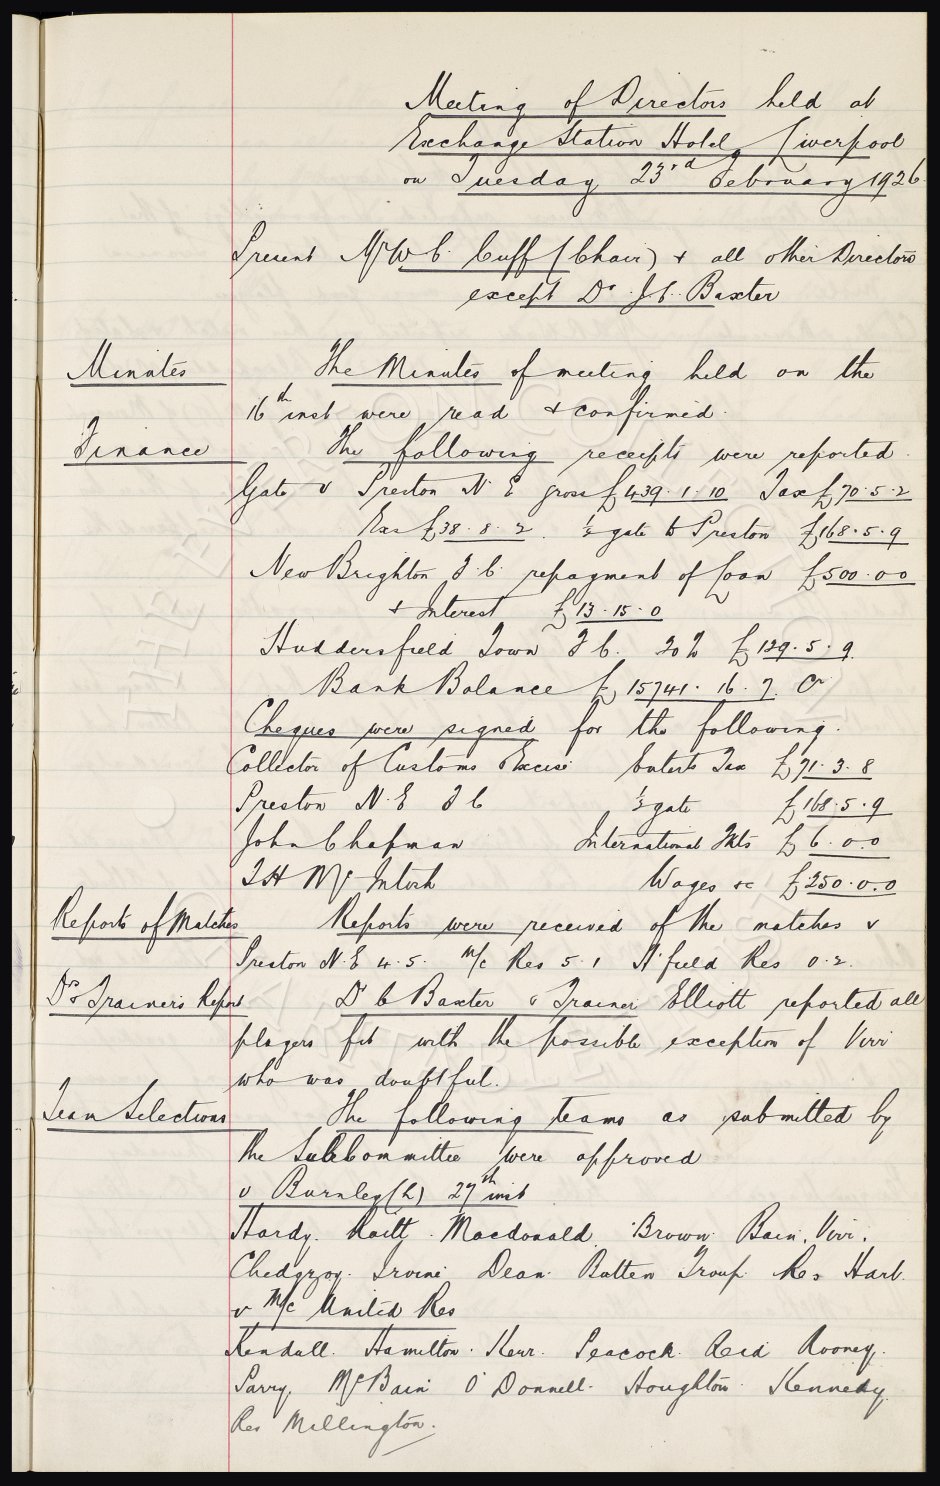 Meeting of Directors held at
Exchange Station Hotel, Liverpool
on Tuesday 23rd February 1926.
Present Mr W C. Cuff (Chair) + all other Directors
except Dr J C. Baxter
Minutes The Minutes of meeting held on the
16th inst were read & confirmed.
Finance The following receipts were reported.
Gate v Preston N E gross £439.1.10 Tax £70.5.2
Exs £38.8.2. ½ gate to Preston £168.5.9
New Brighton F.C. repayment of Loan £500.0.0
+ Interest £13.15.0
Huddersfield Town F C. 20% £129.5.9.
Bank Balance £15741.16.7. Cr
Cheques were signed for the following.
Collector of Customs & Excise Entert Tax £71.3.8
Preston N.E F C ½ gate £168.5.9
John Chapman International Tkts £6.0.0
T H McIntosh Wages &c £250.0.0
Reports of Matches Reports were received of the matches v
Preston N.E 4.5. M/c Res 5.1 A'field Res 0.2.
Dr & Trainer's Report Dr C Baxter & Trainer Elliott reported all
players fit with the possible exception of Virr
who was doubtful.
Team Selections The following teams as submitted by
the SubCommittee were approved
v Burnley (h) 27th inst
Hardy. Raitt. Macdonald. Brown. Bain. Virr.
Chedgzoy. Irvine Dean Batten Troup Res Hart.
v M/c United Res
Kendall. Hamilton. Kerr. Peacock. Reid Rooney.
Parry. McBain O'Donnell. Houghton. Kennedy.
Res Millington.